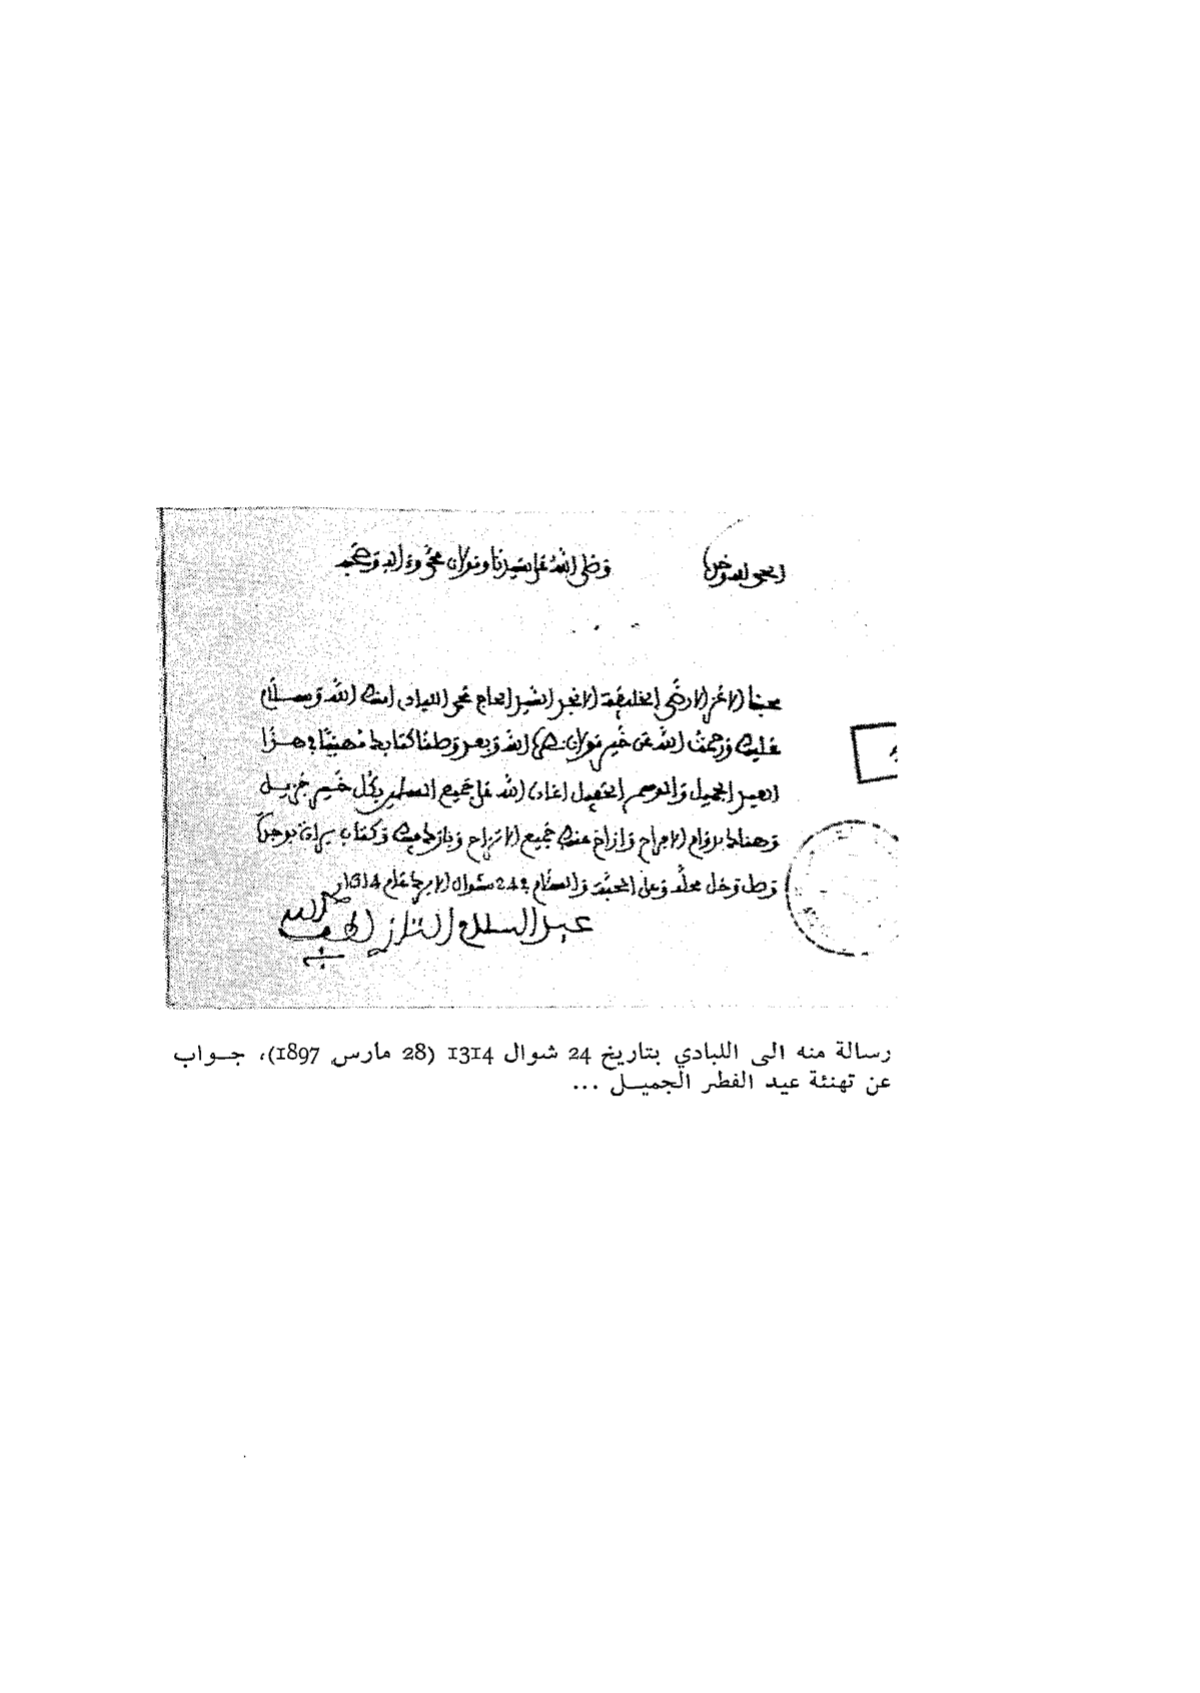 الحمد لله وحده
وصلى الله على سيدنا ومولانا محمد وءاله وصحبه
محبنا الاعز الارضى الخليفة الانجد السيد الحاج محمد اللبادي امنك الله وسلام
عليك ورحمت الله عن خير مولانا نصره الله وبعد وصلنا كتابك مهنيا في هذا
العيد الجميل والموسم الحفيل اعاده الله على جميع المسلمين بكل خير جزيل
وهناك بدوام الافراح وازاح عنك جميع الاتراح وبارك فيك وكتاب
وصل وحل محله وعلى المحبة والسلام في 24 شوال الابرك عام 1314
عبد السلام التازي الله
رسالة منه الى اللبادي بتاريخ 24 شوال 1314 (28 مارس 1897)، جــواب
عن تهنئة عيد الفطر الجميــل ...